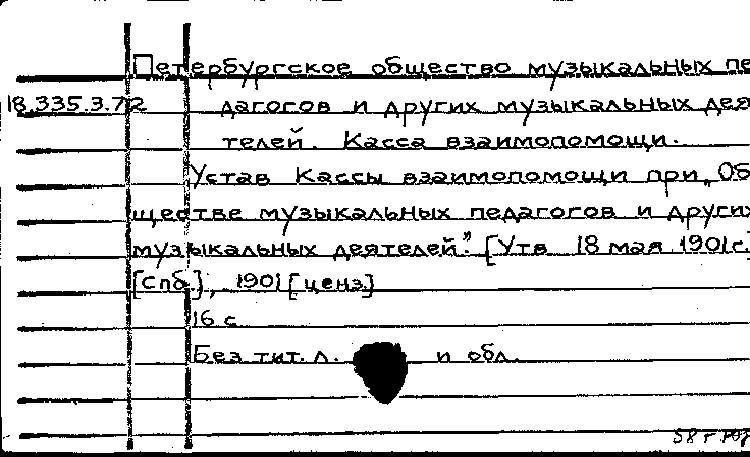 Петербургское общество музыкальных пе
18.335.3.72 дагогов и других музыкальных дея
телей. Касса взаимопомощи.
Устав Кассы взаимопомощи при „Об
ществе музыкальных педагогов и других
музыкальных деятелей." [Утв 18 мая 1901 г.]
[Спб.], 1901 [ценз.]
16 с.
Без тит. л. и обл.
58 г